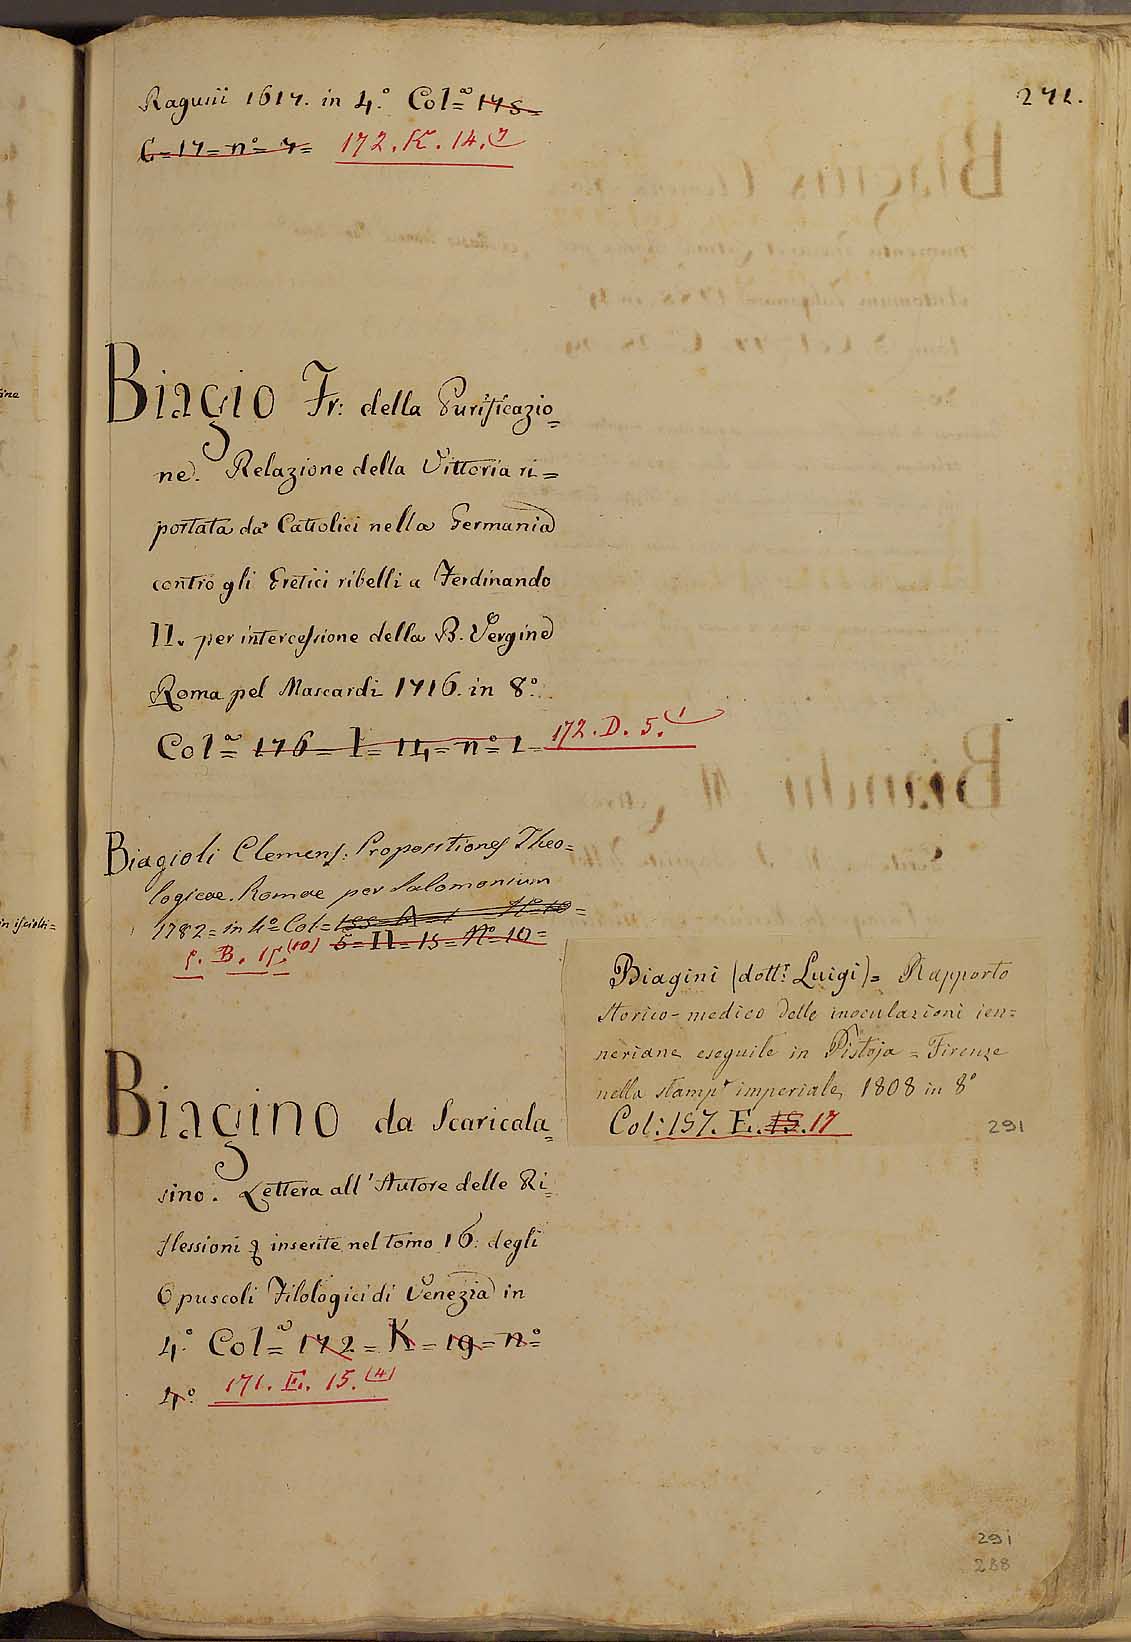 271.
Ragusii 1617. in 4.° Col=ª 175=
C=17=n°=7= 172.K.14.7
Biagio Fr: della Purificazio=
ne. Relazione della Vittoria ri=
portata da' Cattolici nella Germania
contro gli Eretici ribelli a Ferdinando
II. per intercessione della B. Vergine
Roma pel Mascardi 1716. in 8.°
Col=ª 176=I=14=n°=1= 172.D.5.1
Biagioli Clemens: Propositiones Theo=
logicae. Romae per Salomonium
1782= in 4°= Col= N°=10=
5=II=15=N°=10=
5. B. 15.(10)
Biagini (dott.r Luigi)= Rapporto
storico-medico delle inoculazioni ien=
neriane eseguite in Pistoja = Firenze
nella stamp.ª imperiale, 1808 in 8°
Col: 157. E. 15. 17
291
Biagino da Scaricala=
sino. Lettera all'Autore delle Ri=
flessioni & inserite nel tomo 16. degli
Opuscoli Filologici di Venezia in
4.° Col=ª 172=K=19=n°=
4° 171. E. 15.(4)
291
288